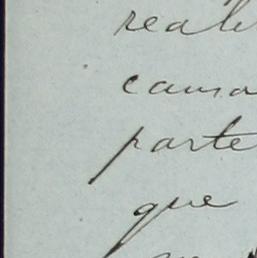 reali
causa
parte
que